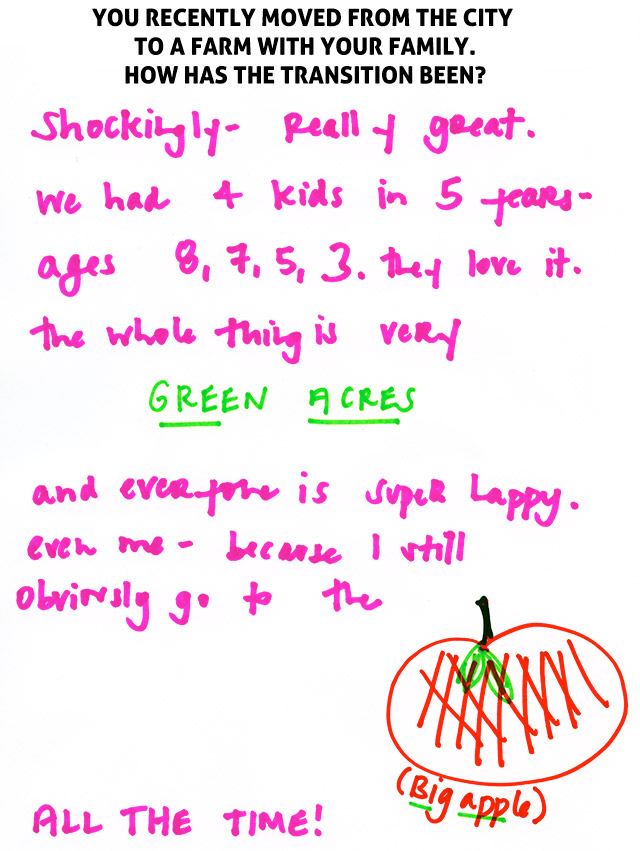 YOU RECENTLY MOVED FROM THE CITY
TO A FARM WITH YOUR FAMILY.
HOW HAS THE TRANSITION BEEN?
Shockingly- Really great.
We had 4 kids in 5 years-
ages 8, 7, 5, 3. they love it.
the whole thing is very
GREEN ACRES
and everyone is super happy.
even me - because I still
obviously go to the
(Big apple)
ALL THE TIME!